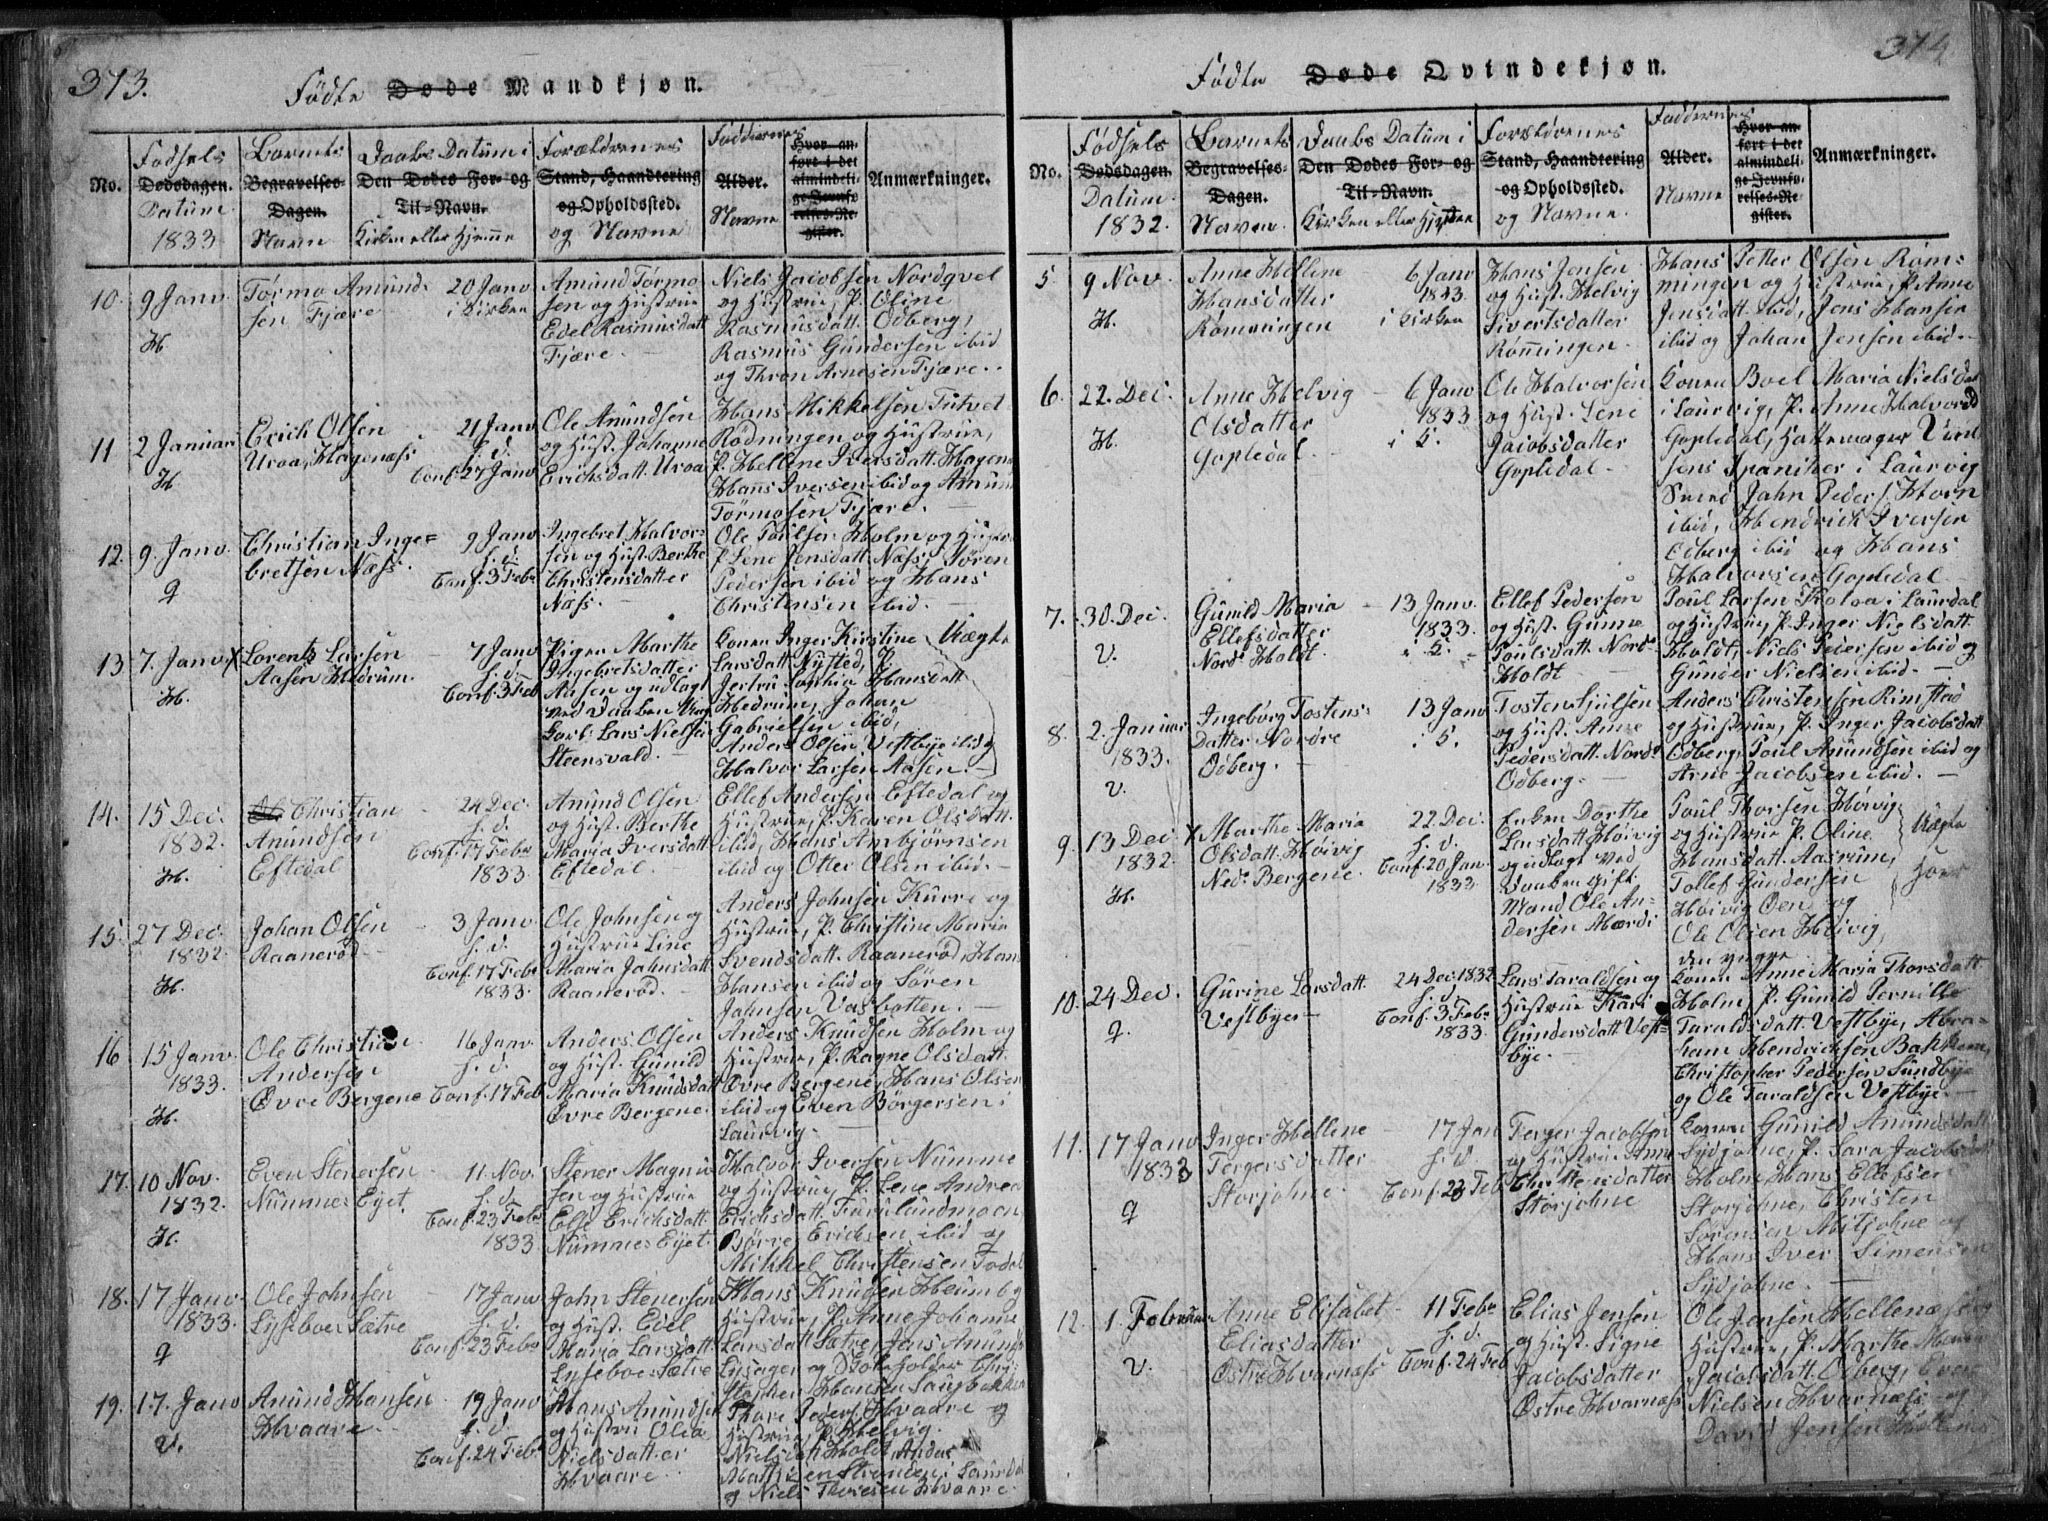 373.
Fødte Døde Mandkjøn.
No.
Fødsels
Dødsdagen.
Datum
1833
Barnets
Begravelses-
Dagen.
Navn
Daabs Datum i
Den Dødes For- og
Til-Navn.
Kirken eller hjemme
Forældrenes
Stand, Haandtering
og Opholdssted.
og Navne
Faddernes
Alder.
Navne
Hvor an-
ført i det
almindeli-
ge Jevnfø-
relses-Re-
gister.
Anmærkninger.
10. 9 Janv.
H
Tørmo Amund-
sen Fjære
20 Janv
i Kirken
Amund Tørmo
sen og Hustrue
Edel Rasmusdatt
Fjære.
Niels Jacobsen Nordqvel
og Hustrue, P. Oline
Rasmusdatt. Odberg,
Rasmus Gundersen ibid
og Thron Arnesen Fjære.
11 2 Januari
H
Erich Olsen
Uroa, Hagenæss
21 Janv
h. d.
Conf. 27 Janv
Ole Amundsen
og Hust. Johanne
Erichsdatt. Uroa
Hans Mikkelsen Tutvet
Rødningen og Hustrue,
P. Hellene Iversdatt. Hagenæ
Hans Iversen ibid og Amun
Tørmosen Fjære.
12. 9. Janv.
Q
Christian Inge=
bretsen Næss.
9 Janv
h. d.
Conf. 3 Febr
Ingebret Halvor=
sen og Hust. Berthe
Christensdatter
Næss.
Ole Poulsen Holm og Hustrue
P. Lene Jensdatt. Næss, Søren
Pedersen ibid og Hans
Christensen ibid.
13 7. Janv X
H.
Lorentz Larsen
Aasen Hedrum.
7 Janv
h. d.
Conf. 3 Feb
Pigen Marthe
Ingebretsdatter
Aasen og udlagt
ved Daaben Ung
Carl Lars Nielsen
Steensvald.
Konen Inger Kirstine
Larsdatt. Nysted, P.
Jertru Sophia Hansdatt
Hedrum, Johan
Gabrielsen ibid,
Anders Olsen Vestbye ibid og
Halvor Larsen Aasen.
Uægte
14. 15 Dec.
1832.
H.
Ole Christian
Amundsen
Eftedal
24 Dec.
h. d.
Conf. 17 Febr
1833
Amund Olsen
og Hust. Berthe
Maria Iversdatt
Eftedal.
Ellef Andersen Eftedal og
Hustrue, P. Karen Olsdatt.
ibid, Hans Ambjørnsen
ibid og Otter Olsen ibid.
15. 27 Dec.
1832
H.
Johan Olsen
Raanerød
3 Janv.
h. d.
Conf. 17 Febr
1833.
Ole Johnsen og
Hustrue Line
Maria Johnsdatt
Raanerød.
Anders Johnsen Kurre og
Hustrue, P. Christine Maria
Svendsdatt. Raanerød, Hans
Hansen ibid og Søren
Johnsen Vasbotten.
16 15 Janv.
1833.
H.
Ole Christian
Andersen
Øvre Bergene
16 Janv.
h. d.
Conf. 17 Feb
Anders Olsen
og Hust. Gunild
Maria Knudsdatt
Øvre Bergene.
Anders Knudsen Holm og
Hustrue, P. Ragne Olsdatt.
Øvre Bergene, Hans Olsen
ibid og Even Børgersen i
Laurvig.
17. 10 Nov.
1832.
H.
Even Stenersen
Nummes Eyet.
11 Nov.
h. d.
Conf. 23 Febr
1833
Stener Magnu
sen og Hustrue
Else Erichsdatt.
Nummes Eyet.
Halvor Iversen Numme
og Hustrue, P. Lene Andrea
Erichsdatt. Furulundmoen
Børre Ericksen ibid og
Mikkel Christensen Fodal
18. 17 Janv
1833.
Q
Ole Johnsen
Lyseboe Sætre
17 Janv
h. d.
Conf. 23 Febr
John Stenersen
og Hust. Edel
Maria Larsdatt
Lyseboe Sætre
Hans Knudsen Heum og
Hustrue, P. Anne Johanne
Larsdatt Sætre, Jens Amunds
Lysager og
Stepher Hansen Saugbakken
19. 17. Janv
V.
Amund Hansen
Hvaare
19 Janv
h. d.
Conf. 24 Febr
Hans Amundsen
og Hustru Olia
Nielsdatter
Hvaare.
Thore Peders. Hvaare og
Hustrue, P. Helvig
Nielsdatt Holdt, Anders
Mathisen Stranden i Laurdal
og Niels Thoresen Hvaare.
374
Fødte Døde Qvindekjøn.
No.
Fødsels
Dødsdagen.
Datum
1832.
Barnets
Begravelses-
Dagen.
Navn.
Daabs Datum i
Den Dødes For- og
Til-Navn.
Kirken eller Hjemme
Forældrenes
Stand, Haandtering
og Opholdssted.
og Navne.
Faddernes
Alder.
Navne
Hvor an-
ført i det
almindeli-
ge Jevnfø-
relses-Re-
gister.
Anmærkninger.
5 9 Nov.
H.
Anne Hellene
Hansdatter
Rømmingen
6 Janv
1833.
i Kirken
Hans Jensen
og Hust. Helvig
Sivertsdatter
Rømmingen.
Hans Petter Olsen Røm-
mingen og Hustrue, P. Anne
Jensdatt. ibid, Jens Hansen
ibid og Johan Jensen ibid.
6. 22. Dec.
H.
Anne Helvig
Olsdatter
Gopledal
6 Janv
1833
i K.
Ole Halvorsen
og Hust. Lene
Jacobsdatter
Gopledal
Konen Boel Maria Nielsdat
i Laurvig, P. Anne Halvorsd
Gopledal, Hattemager
sens i Laurvig
Smed Jahn Peders. Horn
ibid, Hendrick Iversen
Odberg ibid og Hans
Halvorsen Gopledal
7. 30. Dec.
V.
Gunild Maria
Ellefsdatter
Nordr Holdt.
13 Janv.
1833.
i K.
Ellef Pedersen
og Hust. Gunne
Poulsdatt. Nordr
Holdt.
Poul Larsen Kolaa i Laurdal
og Hustrue, P. Inger Nielsdatt.
Holdt, Niels Pedersen ibid og
Gunder Nielsen ibid.
8. 2. Januar
1833.
V.
Ingeborg Tostens-
Datter Nordre
Odberg.
13 Janv
i K.
Tosten Hjulsen
og Hust. Anne
Pedersdatt. Nordr
Odberg.
Anders Christensen Rimstad
og Hustrue, P. Inger Jacobsdatt
Odberg, Poul Amundsen ibid og
Arne Jacobsen ibid.
9. 13 Dec X
1832
H.
Marthe Maria
Olsdatt. Høivig
Nedr Bergene
22 Dec.
h. d.
Conf. 20 Jan.
1833
Enken Dorthe
Larsdatt. Høivig
og udlagt ved
Daaben gift
Mand Ole An=
dersen Mærdi
Poul Thorsen Høivig
og Hustrue P. Oline
Hansdatt. Aasrum,
Tollef Gundersen
Høivig Øen og
Ole Olsen Høivig,
den yngre
Uægte
Hoer
10. 24 Dec.
Q.
Gurine Larsdatt.
Vestbye
24 Dec. 1832
h. d.
Conf. 3 Febr
1833.
Lars Taraldsen og
Hustrue Kari
Gundersdatt Vest=
bye.
Konen Anne Maria Thorsdatt
Holm P. Gunild Pernille
Taraldsdatt. Vestbye, Abra=
ham Hendrichsen Bakken,
Christopher Pedersen Sundbye
og Ole Taraldsen Vestbye.
11. 17 Janv
1833
Q
Inger Hellene
Tergersdatter
Storjohne.
17 Jan
h. d.
Conf. 23 Feb
Terger Jacobsen
og Hustrue Anne
Christensdatter
Storjohne
Konen Gunild Amundsdatt.
Sydjohne, P. Sara Jacobsdatt
Holm, Hans Ellefsen
Storjohne, Christen
Sørensen Mitjohne og
Hans Iver Simensen
Sydjohne.
12. 1. Februar
V.
Anne Elisabet
Eliasdatter
Østre Hvarnæss
11 Febr
h. d.
Conf. 24 Feb
Elias Jensen
og Hust. Signe
Jacobsdatter
Østre Hvarnæss
Ole Jensen Hellenæs og
Hustrue, P. Marthe Maria
Jacobsdatt. Odberg, Even
Nielsen Hvarnæss og
David Jensen Hellenæs